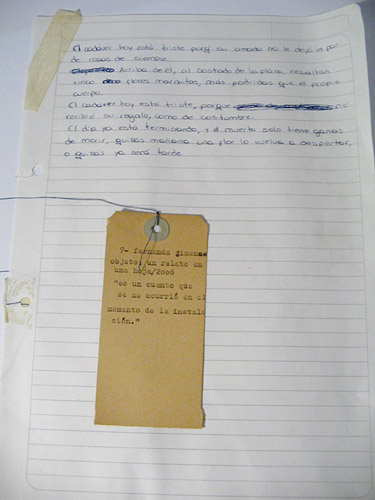 El cadáver hoy está triste porq su amado no le dejó el par
de rosas de siempre.
Arriba de él, al costado de la placa, resaltan
cinco flores marchitas, más podridas que el propio
cuerpo.
El cadáver hoy está triste, porque no
recibió su regalo, como de costumbre.
El día ya está terminando, y el muerto solo tiene ganas
de morir, quizás mañana una flor lo vuelva a despertar,
o quizás ya sea tarde.
7- fernanda
objeto: un relato en
una hoja/2006
"es un cuento que
se me ocurrió en el
momento de la instala
ción."